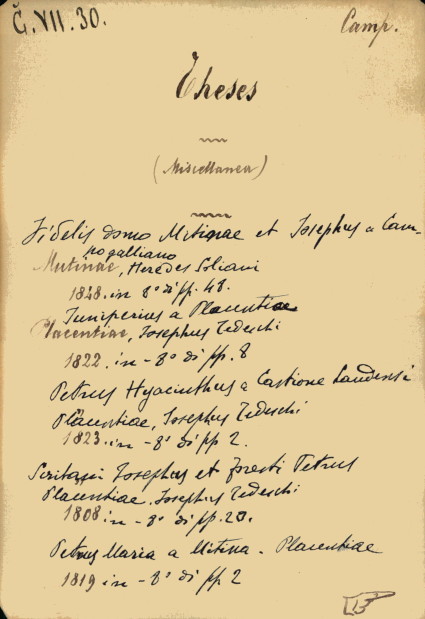 Č.VII.30.
Camp.
Theses
(Miscellanea)
Fidelis domo Mitinae et Josephus a Cam-
pogalliano
Mutinae, Heredes Soliani
1848. in 8° di pp. 48.
Juniperius a Placentiae
Placentiae, Josephus Tedeschi
1822. in - 8° di pp. 8
Petrus Hyacinthus a Castione Laudensi
Placentiae, Josephus Tedeschi
1823. in - 8° di pp 2.
Josephus et Petrus
Placentiae. Josephus Tedeschi
1808 in - 8° di pp. 20.
Petrus Maria a Mitina - Placentiae
1819 in - 8° di pp 2